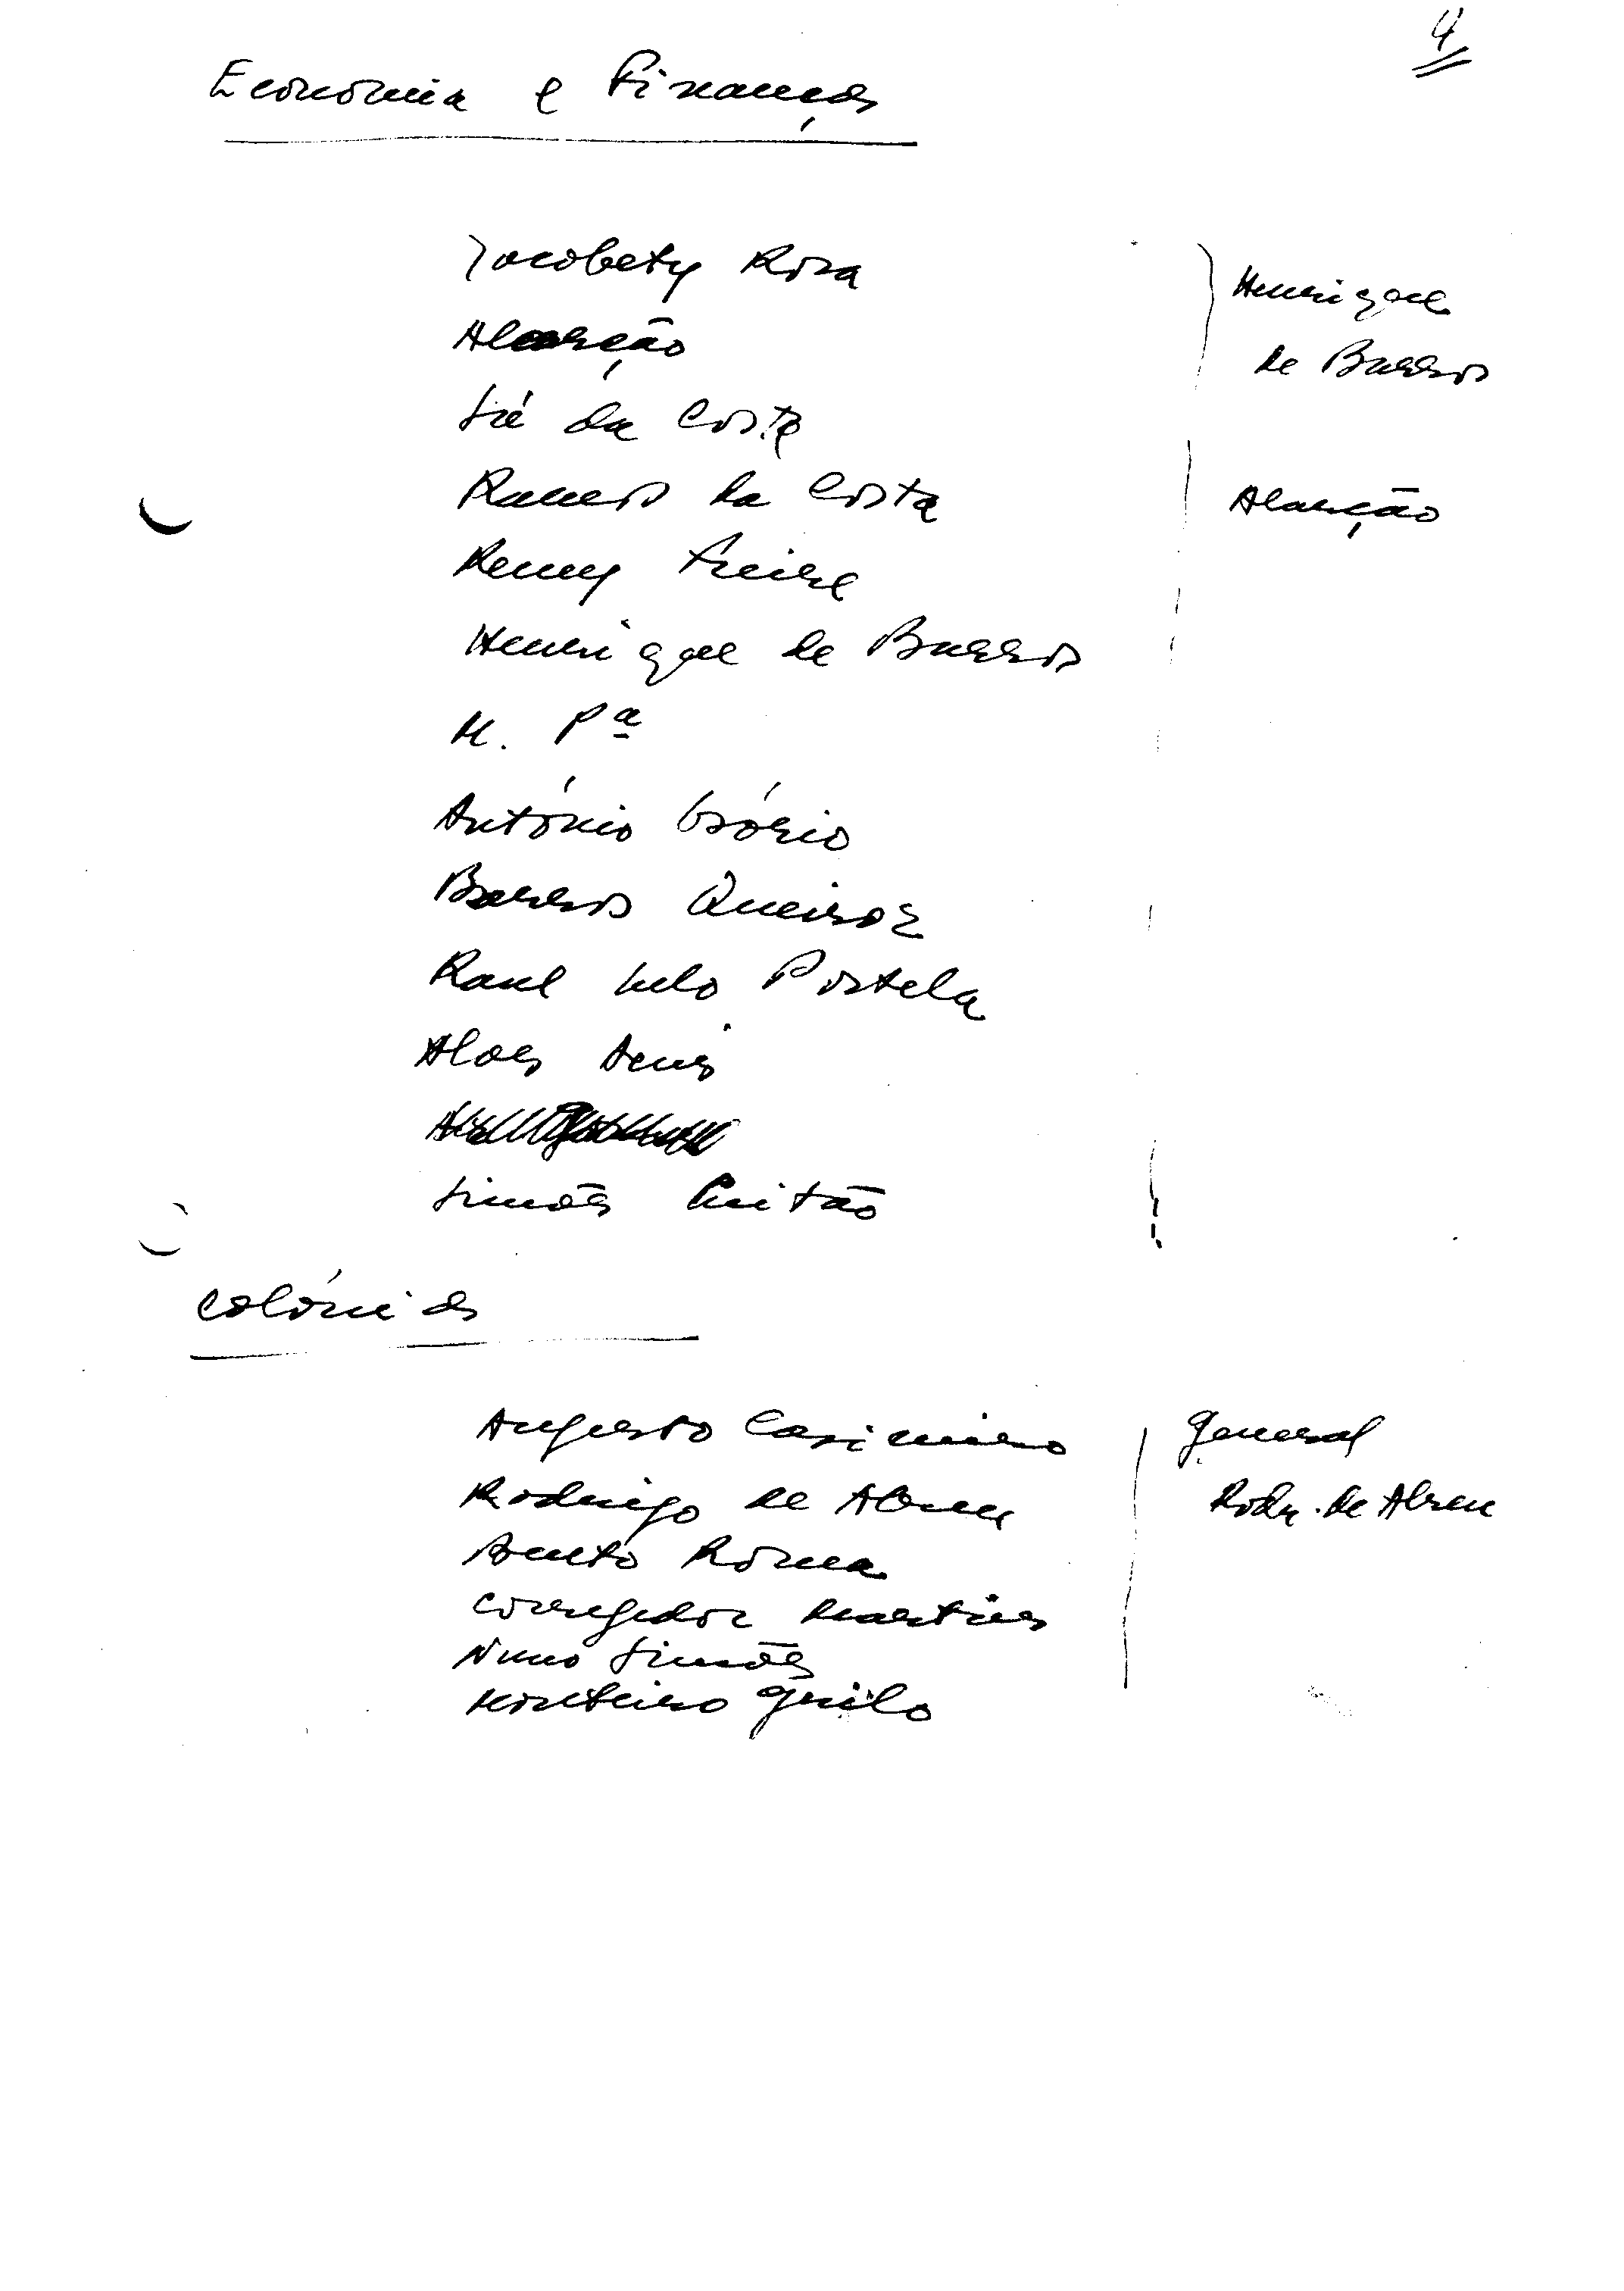 4
Economia e Finanças
Jacobety Rosa
Alarcão
Sá da Costa
Ramos da Costa
Remy Freire
Henrique de Barros
M. Pª
António Osório
Barros Queiroz
Raul Melo Portela
Simões Leitão
Henrique
de Barros
Alarcão
Colónias
Augusto Casimiro
Rodrigo de Abreu
Bento Roma
Corregedor Martins
Nuno Simões
Monteiro Grilo
General
Rodr. de Abreu